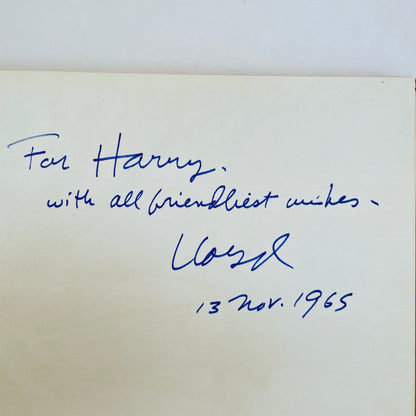 For Harry.
with all friendliest wishes -
Lloyd
13 Nov. 1965